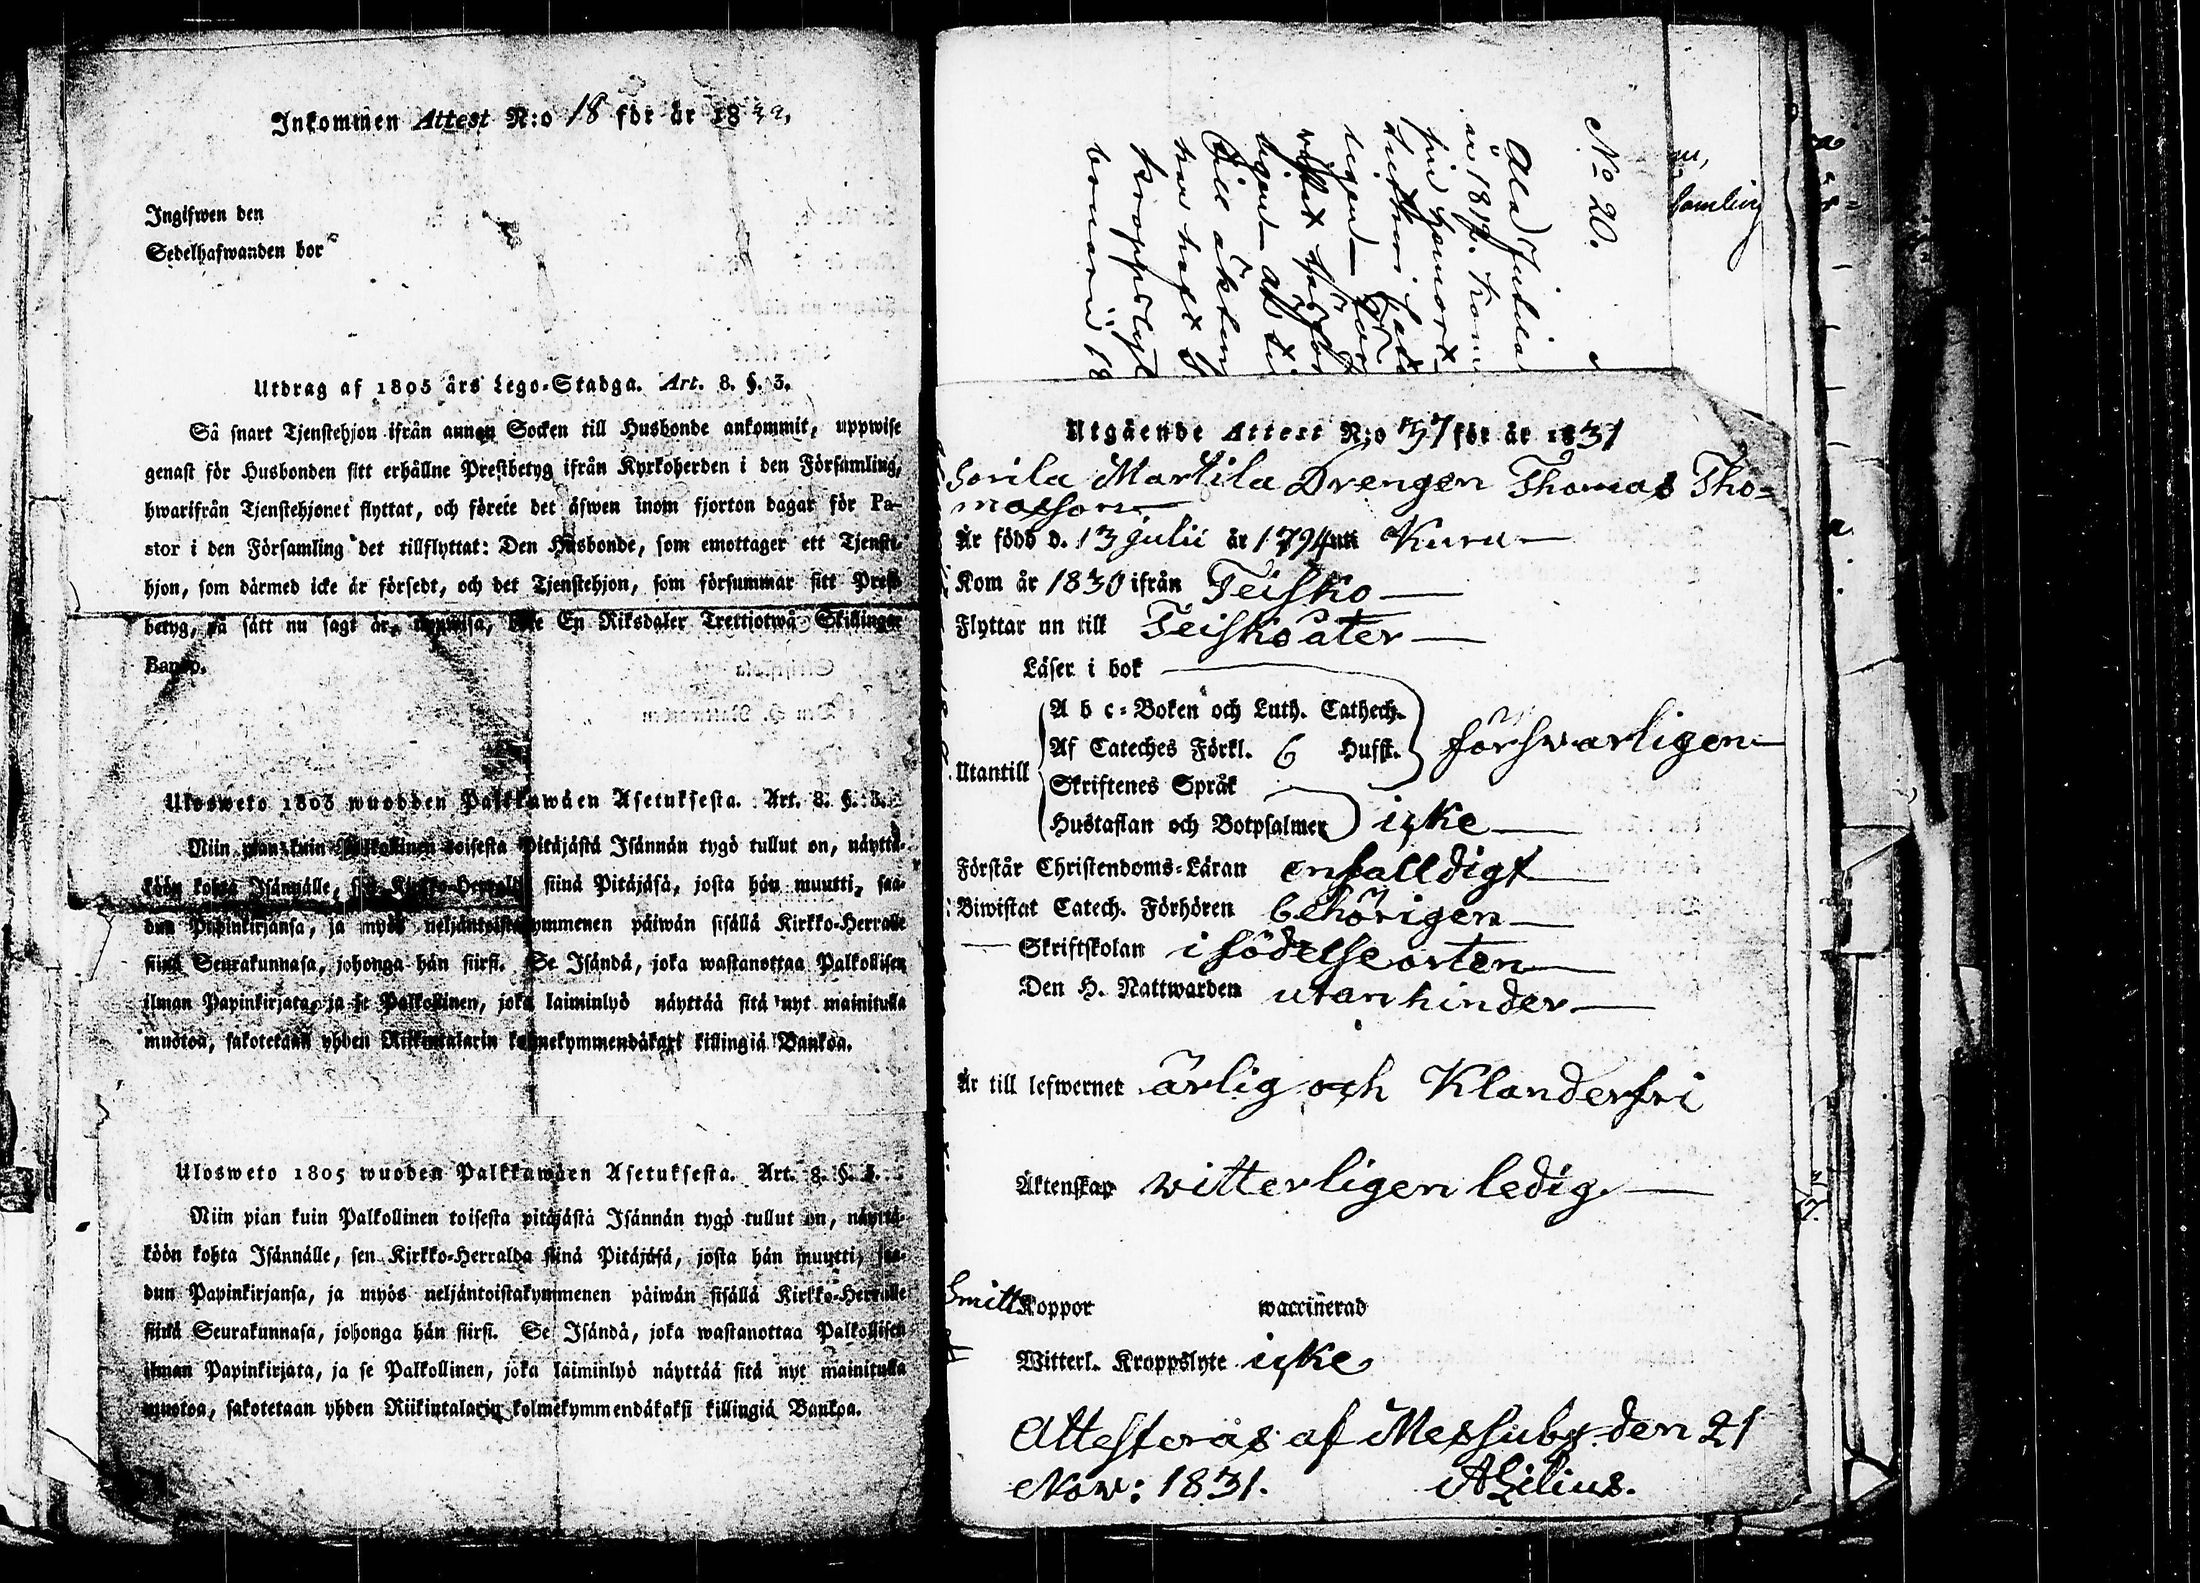 Inkommen Attest N:o 18 för år 18
Ingifwen den
Sedelhafwanden bor
Utdrag af 1805 års Lego-Stadga. Art. 8. §. 3.
Så snart Tjenstehjon ifrån annan Socken till Husbonde ankommit, uppwise
genast för Husbonden sitt erhållne Prestbetyg ifrån Kyrkoherden i den Församling,
hwarifrån Tjenstehjonet flyttat, och förete det äfwen inom fjorton dagar för Pa-
stor i den Församling det tillflyttat: Den Husbonde, som emottager ett Tjenste-
hjon, som därmed icke är försedt, och det Tjenstehjon, som försummar sitt Prest-
betyg, på sätt nu sagt är, uppwisa, böte En Riksdaler Trettiotwå Skillingar
Banko.
Ulosweto 1805 wuodden Palkkawäen Asetuksesta. Art. 8. §. 3.
Niin pian kuin Palkollinen toisesta Pitäjästä Isännän tygö tullut on, näyttä-
köön kohta Isännälle, sen Kirkko-Herralda siinä Pitäjäsä, josta hän muutti, saa-
dun Papinkirjansa, ja myös neljäntoistakymmenen päiwän sisällä Kirkko-Herralle
siinä Seurakunnasa, johonga hän siirsi. Se Isändä, joka wastanottaa Palkollisen
ilman Papinkirjata, ja se Palkollinen, joka laiminlyö näyttää sitä nyt mainitulla
muotoa, sakotetaan yhden Riikintalarin kolmekymmendäkaxi killingiä Bankoa.
Ulosweto 1805 wuoden Palkkawäen Asetuksesta. Art. 8. §. 3.
Niin pian kuin Palkollinen toisesta pitäjästä Isännän tygö tullut on, näyttä-
köön kohta Isännälle, sen Kirkko-Herralda siinä Pitäjäsä, josta hän muutti, saa-
dun Papinkirjansa, ja myös neljäntoistakymmenen päiwän sisällä Kirkko-Herralle
siinä Seurakunnasa, johonga hän siirsi. Se Isändä, joka wastanottaa Palkollisen
ilman Papinkirjata, ja se Palkollinen, joka laiminlyö näyttää sitä nyt mainitulla
muotoa, sakotetaan yhden Riikintalarin kolmekymmendäkaksi killingiä Bankoa.
No 20.
år 1819.
till äkten
har haft
kroppslyt
Utgående Attest N:o 37 för år 1831
Sorila Martila Drengen Thomas Tho=
masson
Är född d. 13 Julii år 1794 uti Kuru
Kom år 1830 ifrån Teisko
Flyttar nu till Teisko åter
Läser i bok
Utantill
A b c-Boken och Luth. Cathech.
Af Cateches Förkl. 6 Hufst. förswarligen
Skriftenes Språk
Hustaflan och Botpsalmer icke
Förstår Christendoms-Läran enfalldigt
Biwistat Catech. Förhören behörigen
Skriftskolan i födelseorten
Den H. Nattwarden utan hinder
Är till lefwernet ärlig och Klanderfri
Äktenskap witterligen ledig
Smitt Koppor waccinerad
Witterl. Kroppslyte icke
Attesterás af Messuby den 21
Now: 1831. AGilius.